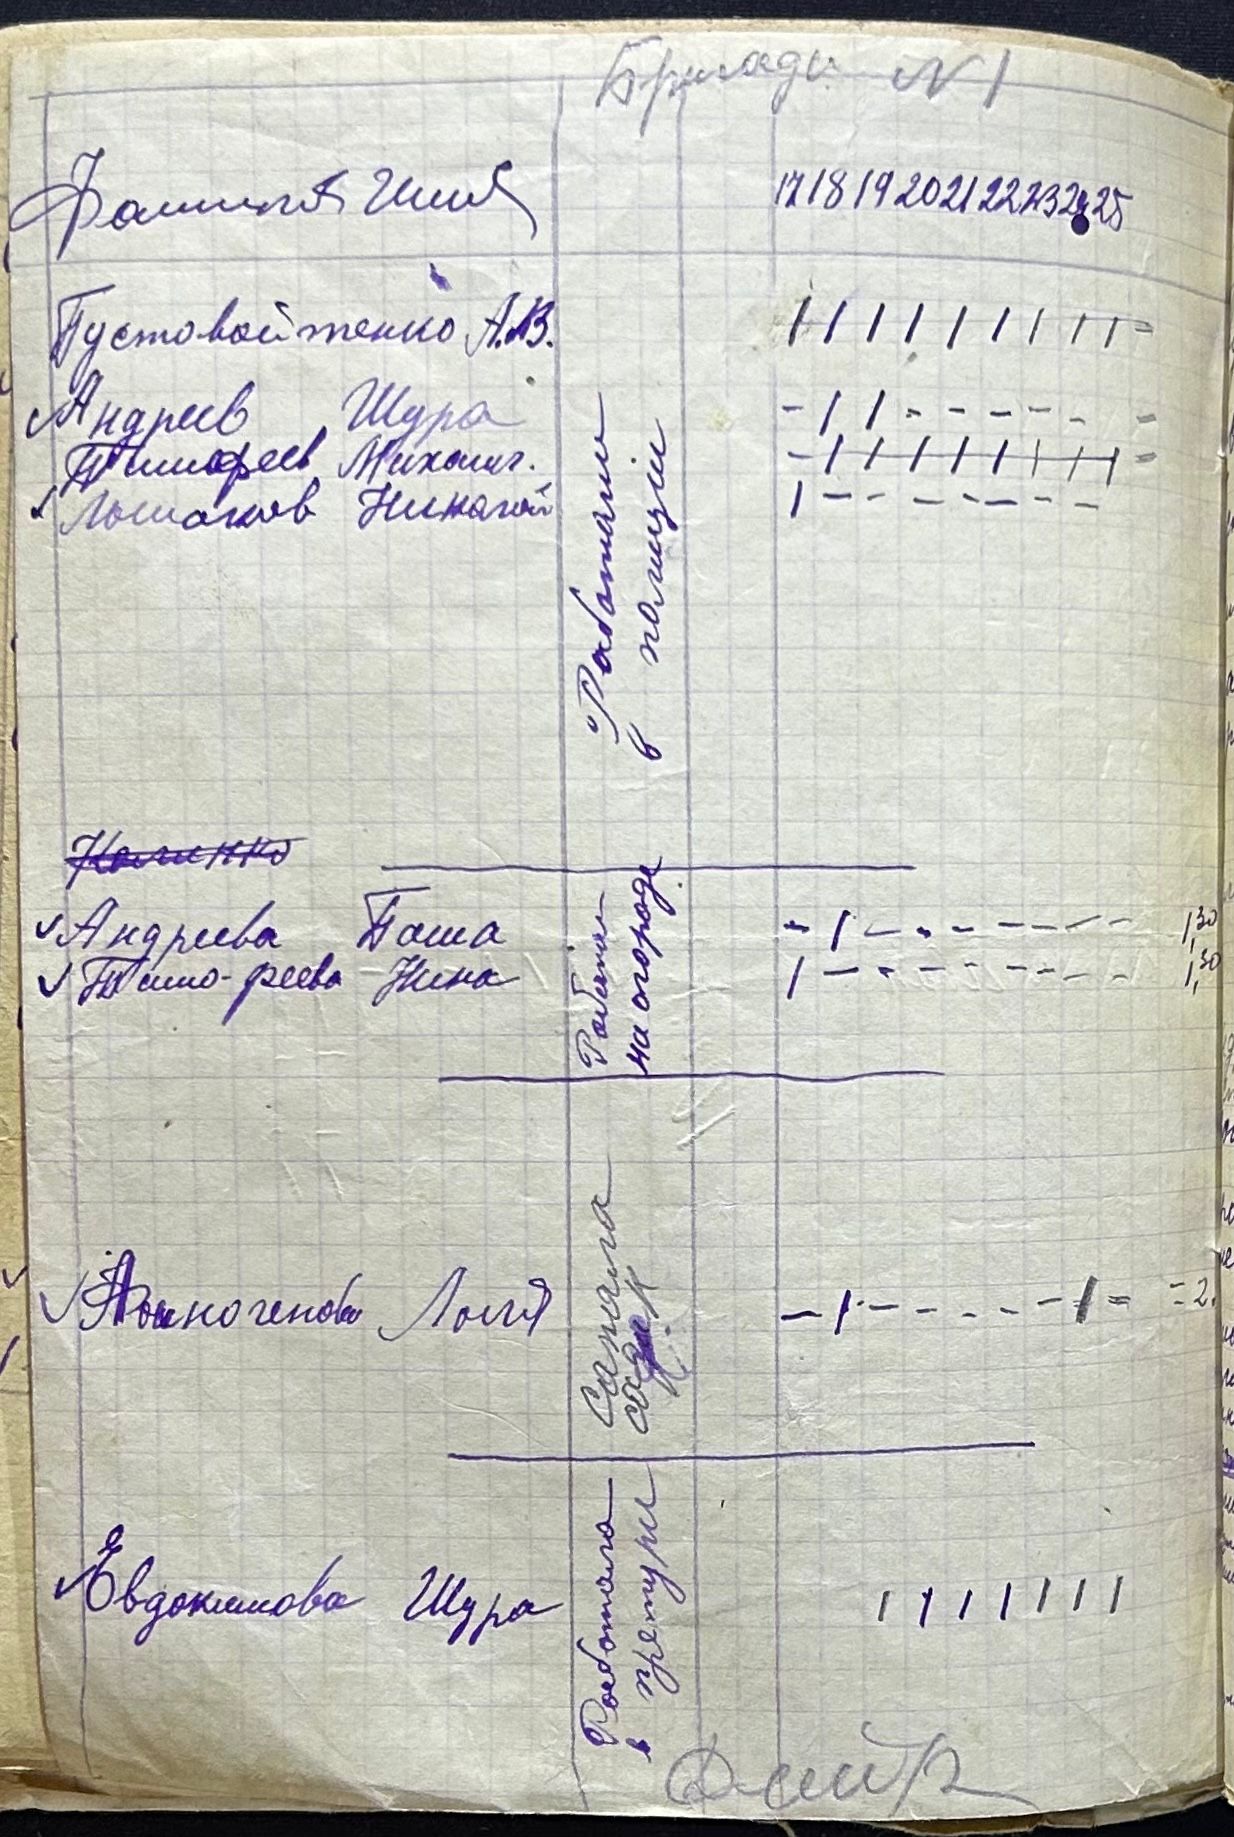 Бригади N 1
Фамилия Имя 17 18 19 20 21 22 23 24 25
Пустовойтенко А.В. | | | | | | | | | =
Андреев Шура - | | - - - - - =
Тимофеев Михаил. - | | | | | | | | =
Лошаков Николай | - - - - - - -
Работали
в полиции
Калинко
Андреева Паша - | - - - - - - - 1,30
Тимо-феева Нина | - - - - - - - - 1,30
Работали
на огороде
Лоля - | - - - - - - | = = 2.
Сапала
Евдокимова Шура | | | | | | |
Работала
в претуре